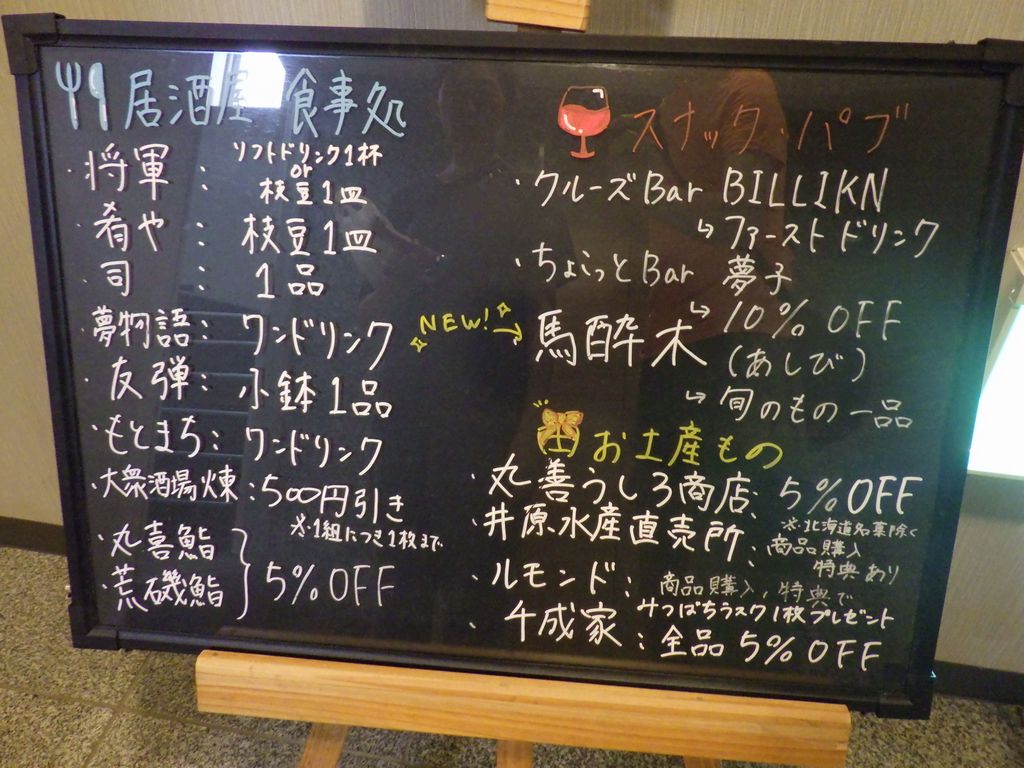 居酒屋 食事処
・将軍 : ソフトドリンク1杯
or
枝豆1皿
・肴や : 枝豆1皿
・司 : 1品
・夢物語 : ワンドリンク
・友弾 : 小鉢1品
・もとまち : ワンドリンク
・大衆酒場 煉 : 500円引き
※1組につき1枚まで
・丸喜鮨
・荒磯鮨
5%OFF
スナック・パブ
・クルーズBar BILLIKN
↳ファーストドリンク
・ちょこっとBar 夢子
↳10%OFF
NEW!→
馬酔木
(あしび)
↳旬のもの一品
お土産もの
・丸善うしろ商店 : 5%OFF
※北海道名菓除く
・井原水産直売所 : 商品購入
特典あり
・ルモンド : 商品購入、特典で
みつばちラスク1枚プレゼント
・千成家 : 全品5%OFF